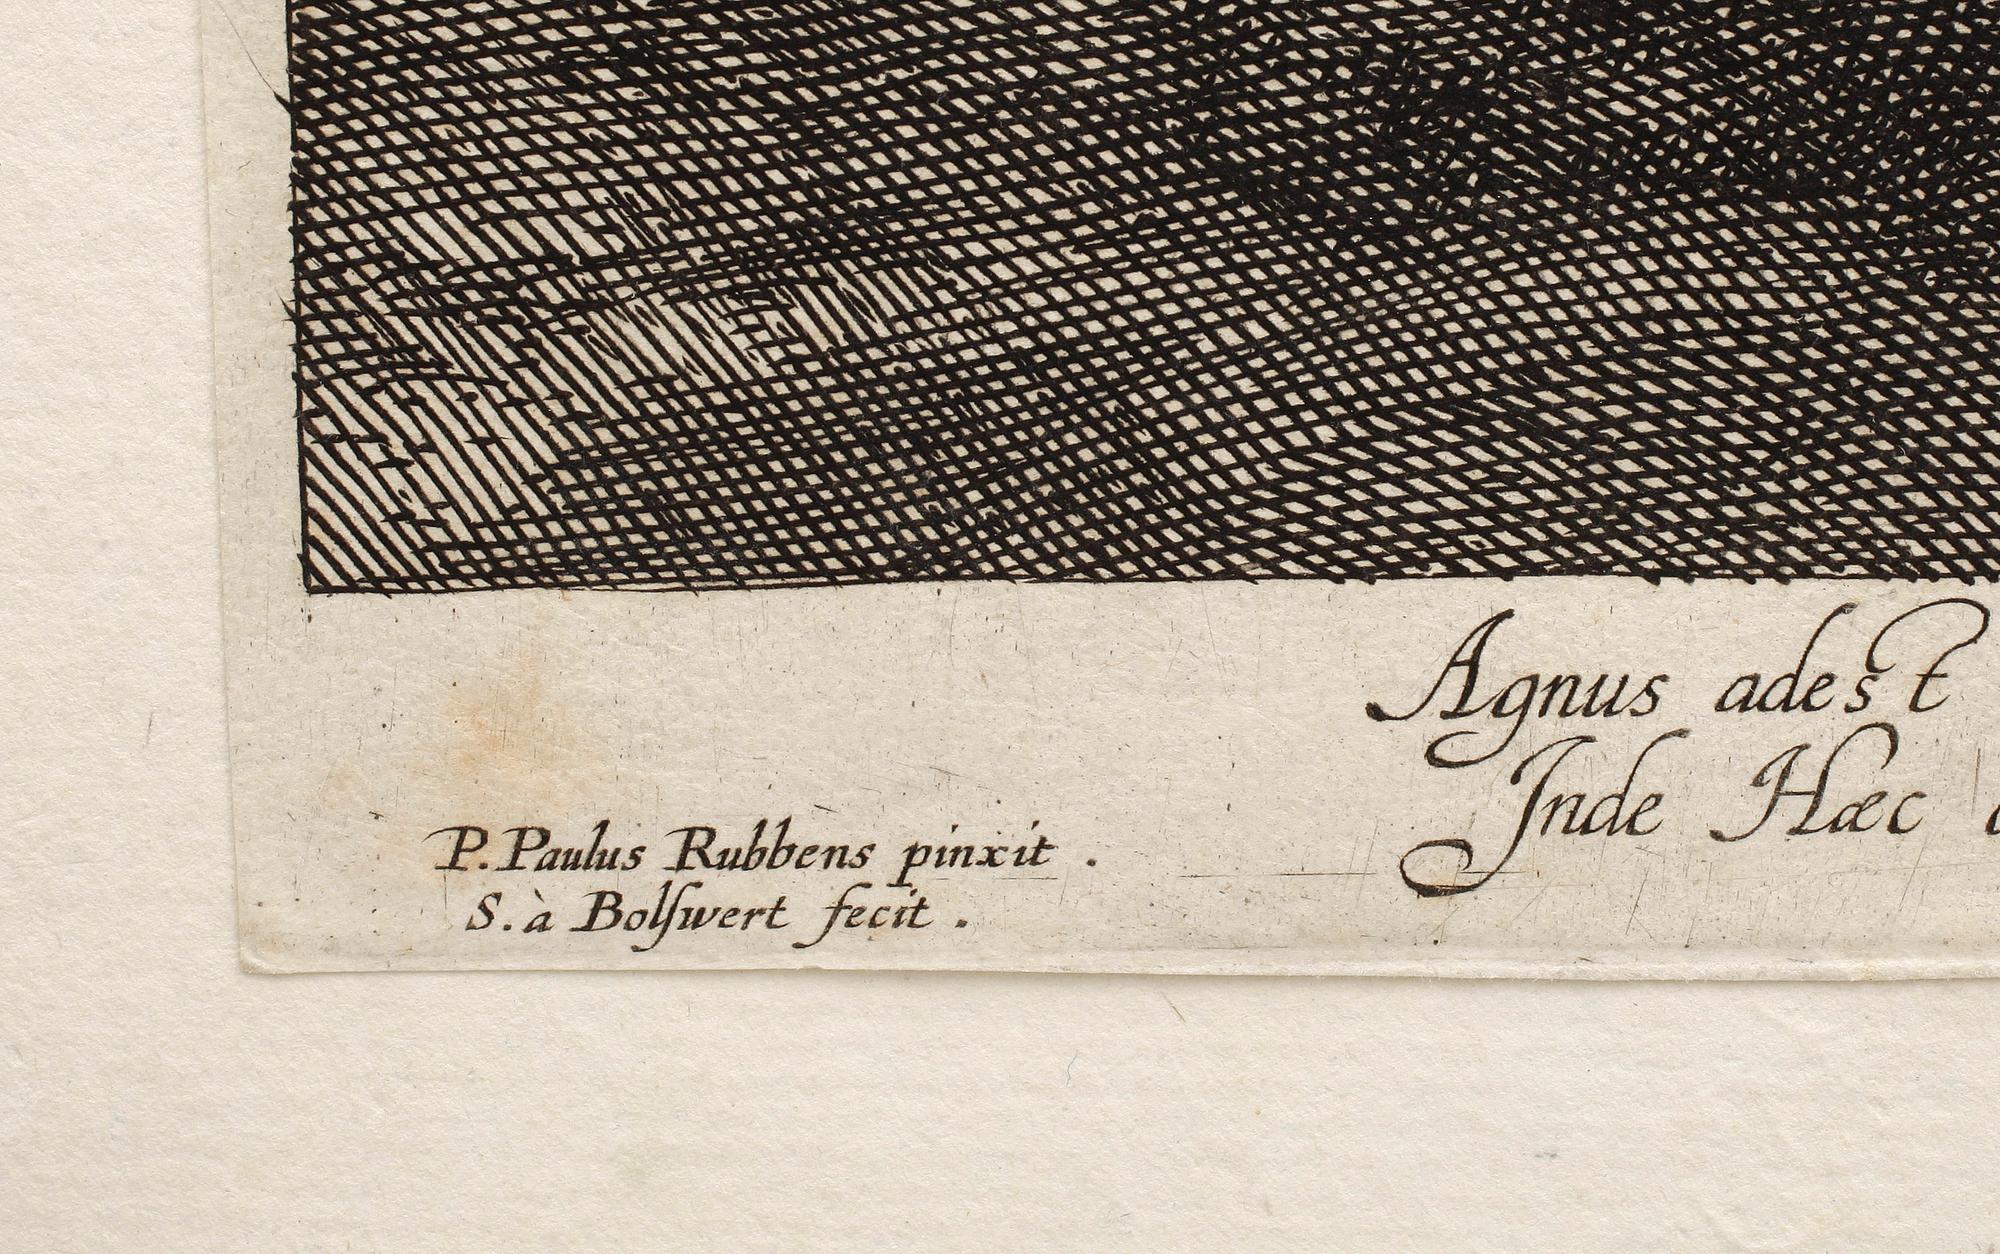 Agnus adest
Inde Hæc
P. Paulus Rubbens pinxit .
S. à Bolſwert fecit .